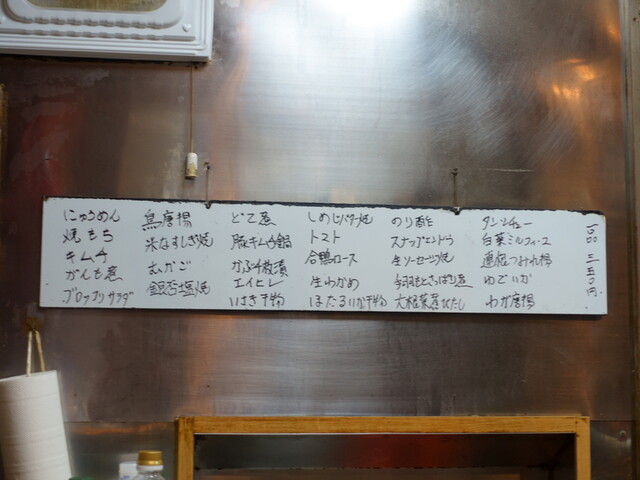 にゅうめん
焼もち
キムチ
がんも煮
ブロッコリサラダ
鳥唐揚
米なすしぎ焼
むかご
銀杏塩焼
どて煮
豚キムチ鍋
かぶ千枚漬
エイヒレ
いさき干物
しめじバター焼
トマト
合鴨ロース
生わかめ
ほたるいか干物
のり酢
スナップエンドウ
生ソーセージ焼
手羽もとさっぱり煮
大根葉煮びたし
タンシチュー
白菜ミルフィーユ
蓮根つみれ揚
ゆでいか
唐揚
三五〇円